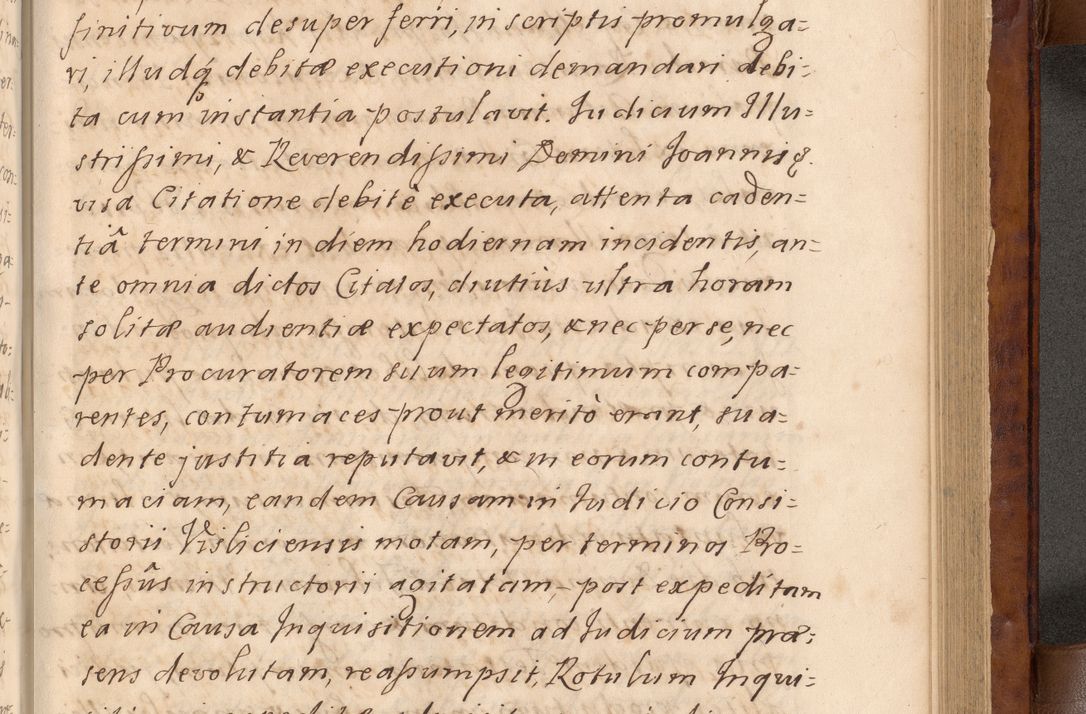 finitivum desuper ferri, in scriptis promulga=
ri, illudq́ debitæ executioni demandari debi=
ta cum instantia postulavit. Judicium Illu=
strissimi, & Reverendissimi Domini Joannis &.
visa Citatione debitè executa, attenta caden=
tiâ termini in diem hodiernam incidentis, an=
te omnia dictos Citatos, diutiùs ultra horam
solitæ audientiæ expectatos, & nec per se, nec
per Procuratorem suum legitimum compa=
rentes, contumaces prout meritò erant, sua=
dente justitia reputavit, & in eorum contu=
maciam, eandem Causam in Judicio Consi=
storii Visliciensis motam, per terminos Pro=
cessûs instructorii agitatam, post expeditam
ea in Causa Inquisitionem ad Judicium præ=
sens devolutam, reassumpsit, Rotulum Inqui=